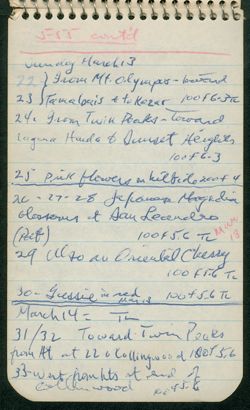 5-55 cont'd
Sunday March 13
22 } From Mt. Olympus - toward
23 } Tamalpais & to Kezar 100 f 6.3 Tu
24. From Twin Peaks - toward
Laguna Honda & Sunset Heights
100 f 6-3
25 Pink flowers in hillside 100 f 4
26-27-28 Japanese Magnolia
blossoms at San Leandro
(Port) 100 f 5.6 Tu
Mar 13
29 Also an Oriental Cherry
100 f 5.6 Tu
30 - in red Mar 13 100 f 5.6 Tu
March 14 =
31/32 Toward Twin Peaks
from Apt at 22 & Collingwood 100 f 5.6
33 - went from hts at end of
Collingwood 100 f 5.6